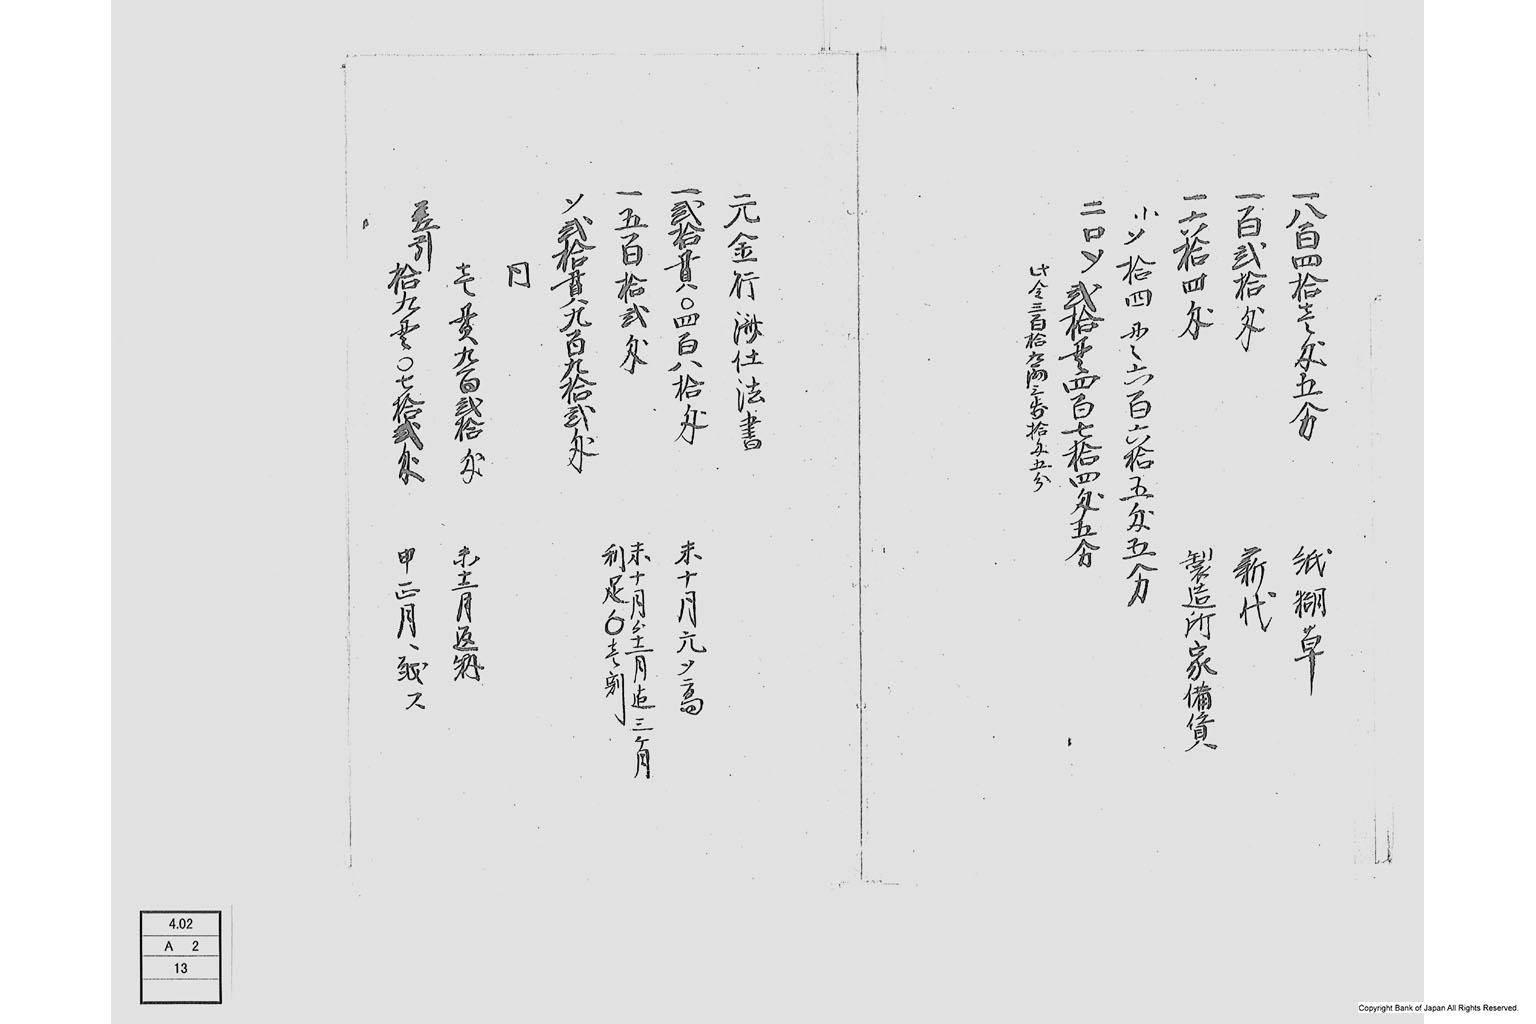 一八百四拾壱匁五分　紙糊草
一百弐拾匁　薪代
一六拾四匁　製造所家備賃
小〆拾四〆六百六拾五匁五分
二口〆弐拾〆四百七拾四匁五分
此金三百拾九両三歩拾匁五分
元金行済仕法書
一弐拾貫〇四百八拾匁　未十月元〆高
一五百拾弐匁　未十月ゟ十二月迄三ケ月
利足〇壱割
〆弐拾貫九百九拾弐匁
内
壱貫九百弐拾匁　未十二月返納
差引
拾九〆〇七拾弐匁　申正月
4.02
A 2
13
Copyright Bank of Japan All Rights Reserved.